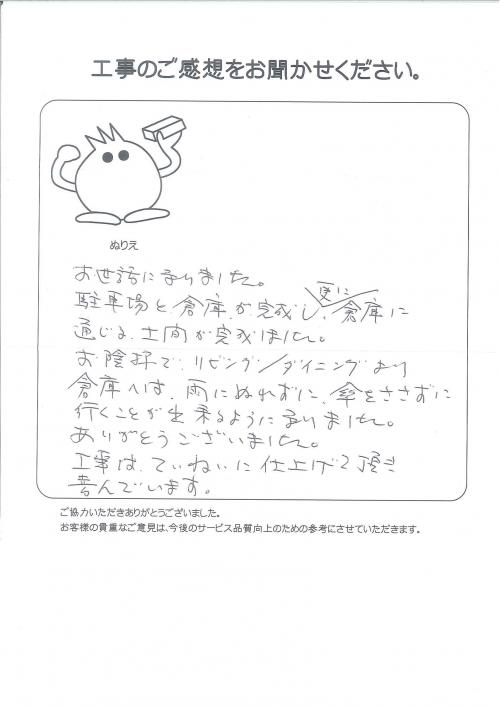 工事のご感想をお聞かせください。
ぬりえ
お世話になりました。
駐車場と、倉庫が完成し、更に倉庫に
通じる、土間が完成しました。
お陰様で、リビング/ダイニングより
倉庫へは、雨にぬれずに、傘をささずに
行くことが出来るようになりました。
ありがとうございました。
工事は、ていねいに仕上げて頂き
喜んでいます。
ご協力いただきありがとうございました。
お客様の貴重なご意見は、今後のサービス品質向上のための参考にさせていただきます。